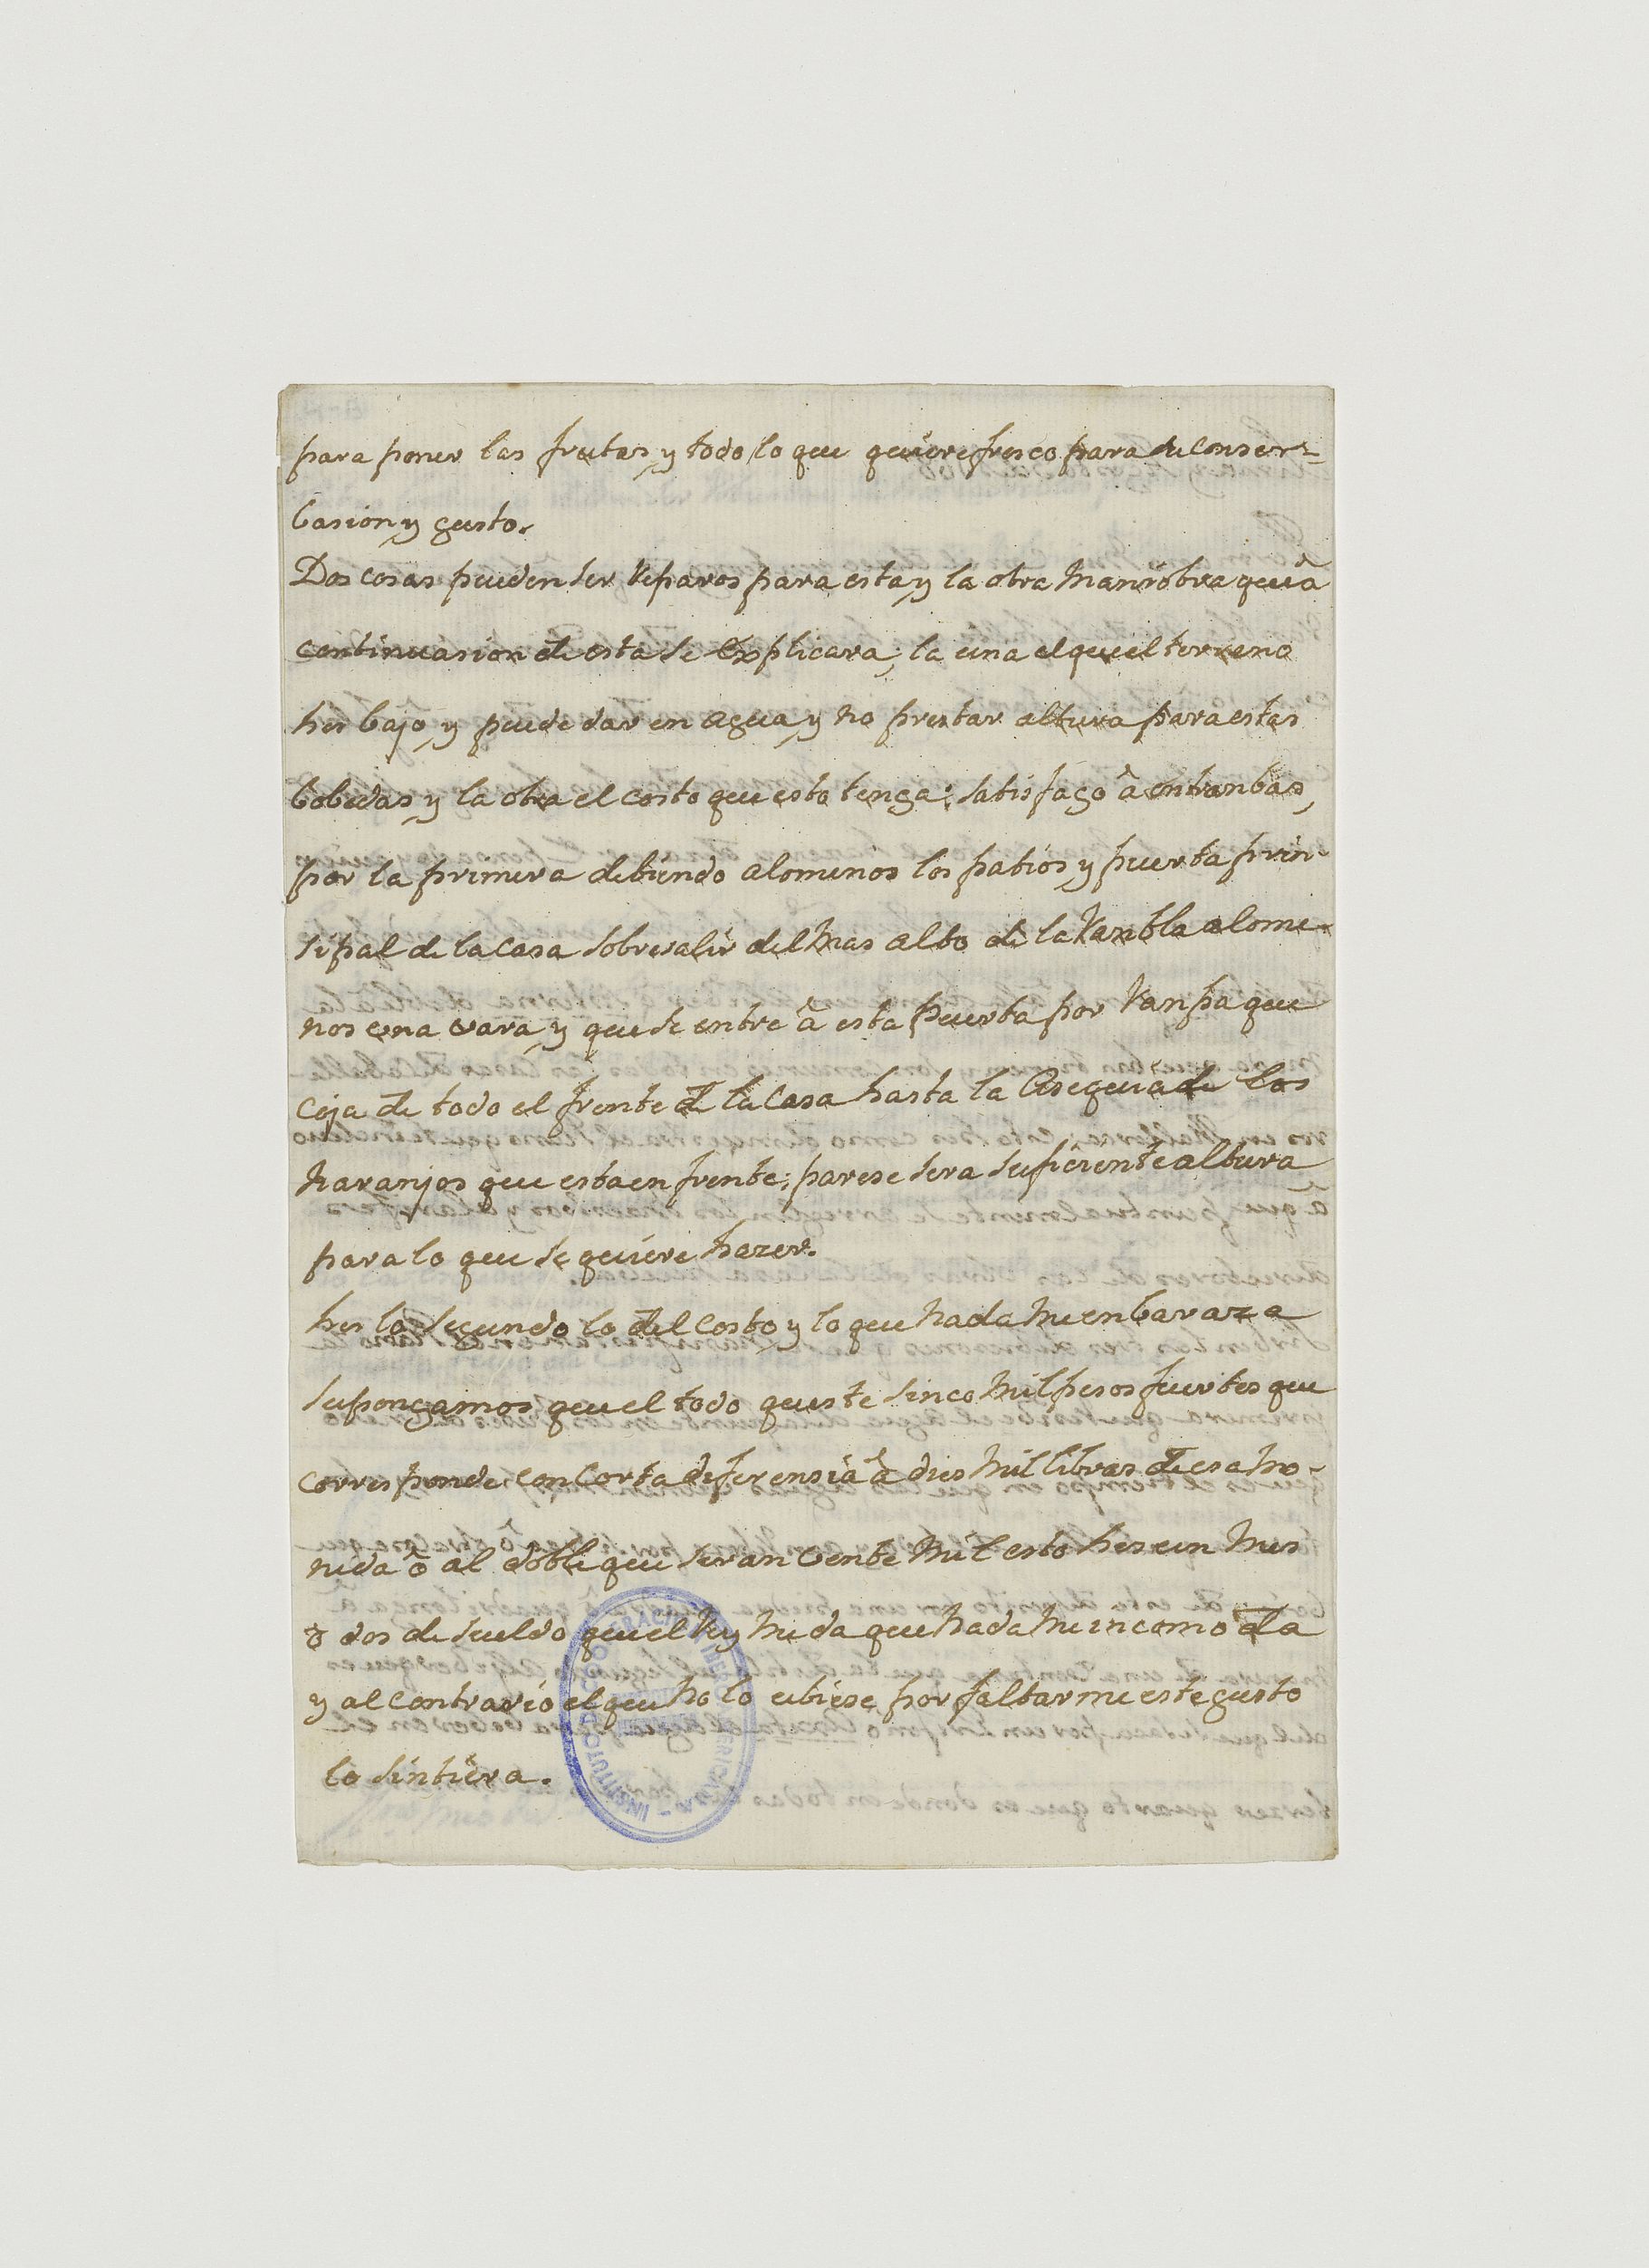 para poner las frutas y todo lo que quiere fresco para su conser=
basion y gusto.
Dos cosas pueden ser Reparos para esta y la otra maniobra que â
continuasion de esta se Explicara; la una el que el terreno
hes bajo y puede dar en agua y no prestar altura para estas
bobedas y la otra el costo que esto tenga; satisfago â entranbas,
por la primera debiendo alomenos los patios y puerta prin-
sipal de la casa sobresalir del mas alto de la Ranbla alome-
nos una vara y que se entre â esta puerta por Ranpa que
coja de todo el frente de la Casa hasta la Asequia de los
naranjos que esta en frente; parese sera sufisiente altura
para lo que se quiere hazer.
hes lo segundo lo del costo y lo que nada me enbaraza
supongamos que el todo queste sinco mil pesos fuertes que
corresponde con Corta diferensia â dies mil libras de esa mo-
neda ô al doble que seran vente mil esto hes un mes
ô dos de sueldo que el Rey me da que nada me incomoda
y al contrario el que no lo ubiese por faltarme este gusto
lo sintiera.
INSTITUTO DE COOPERACION IBEROAMERICANA